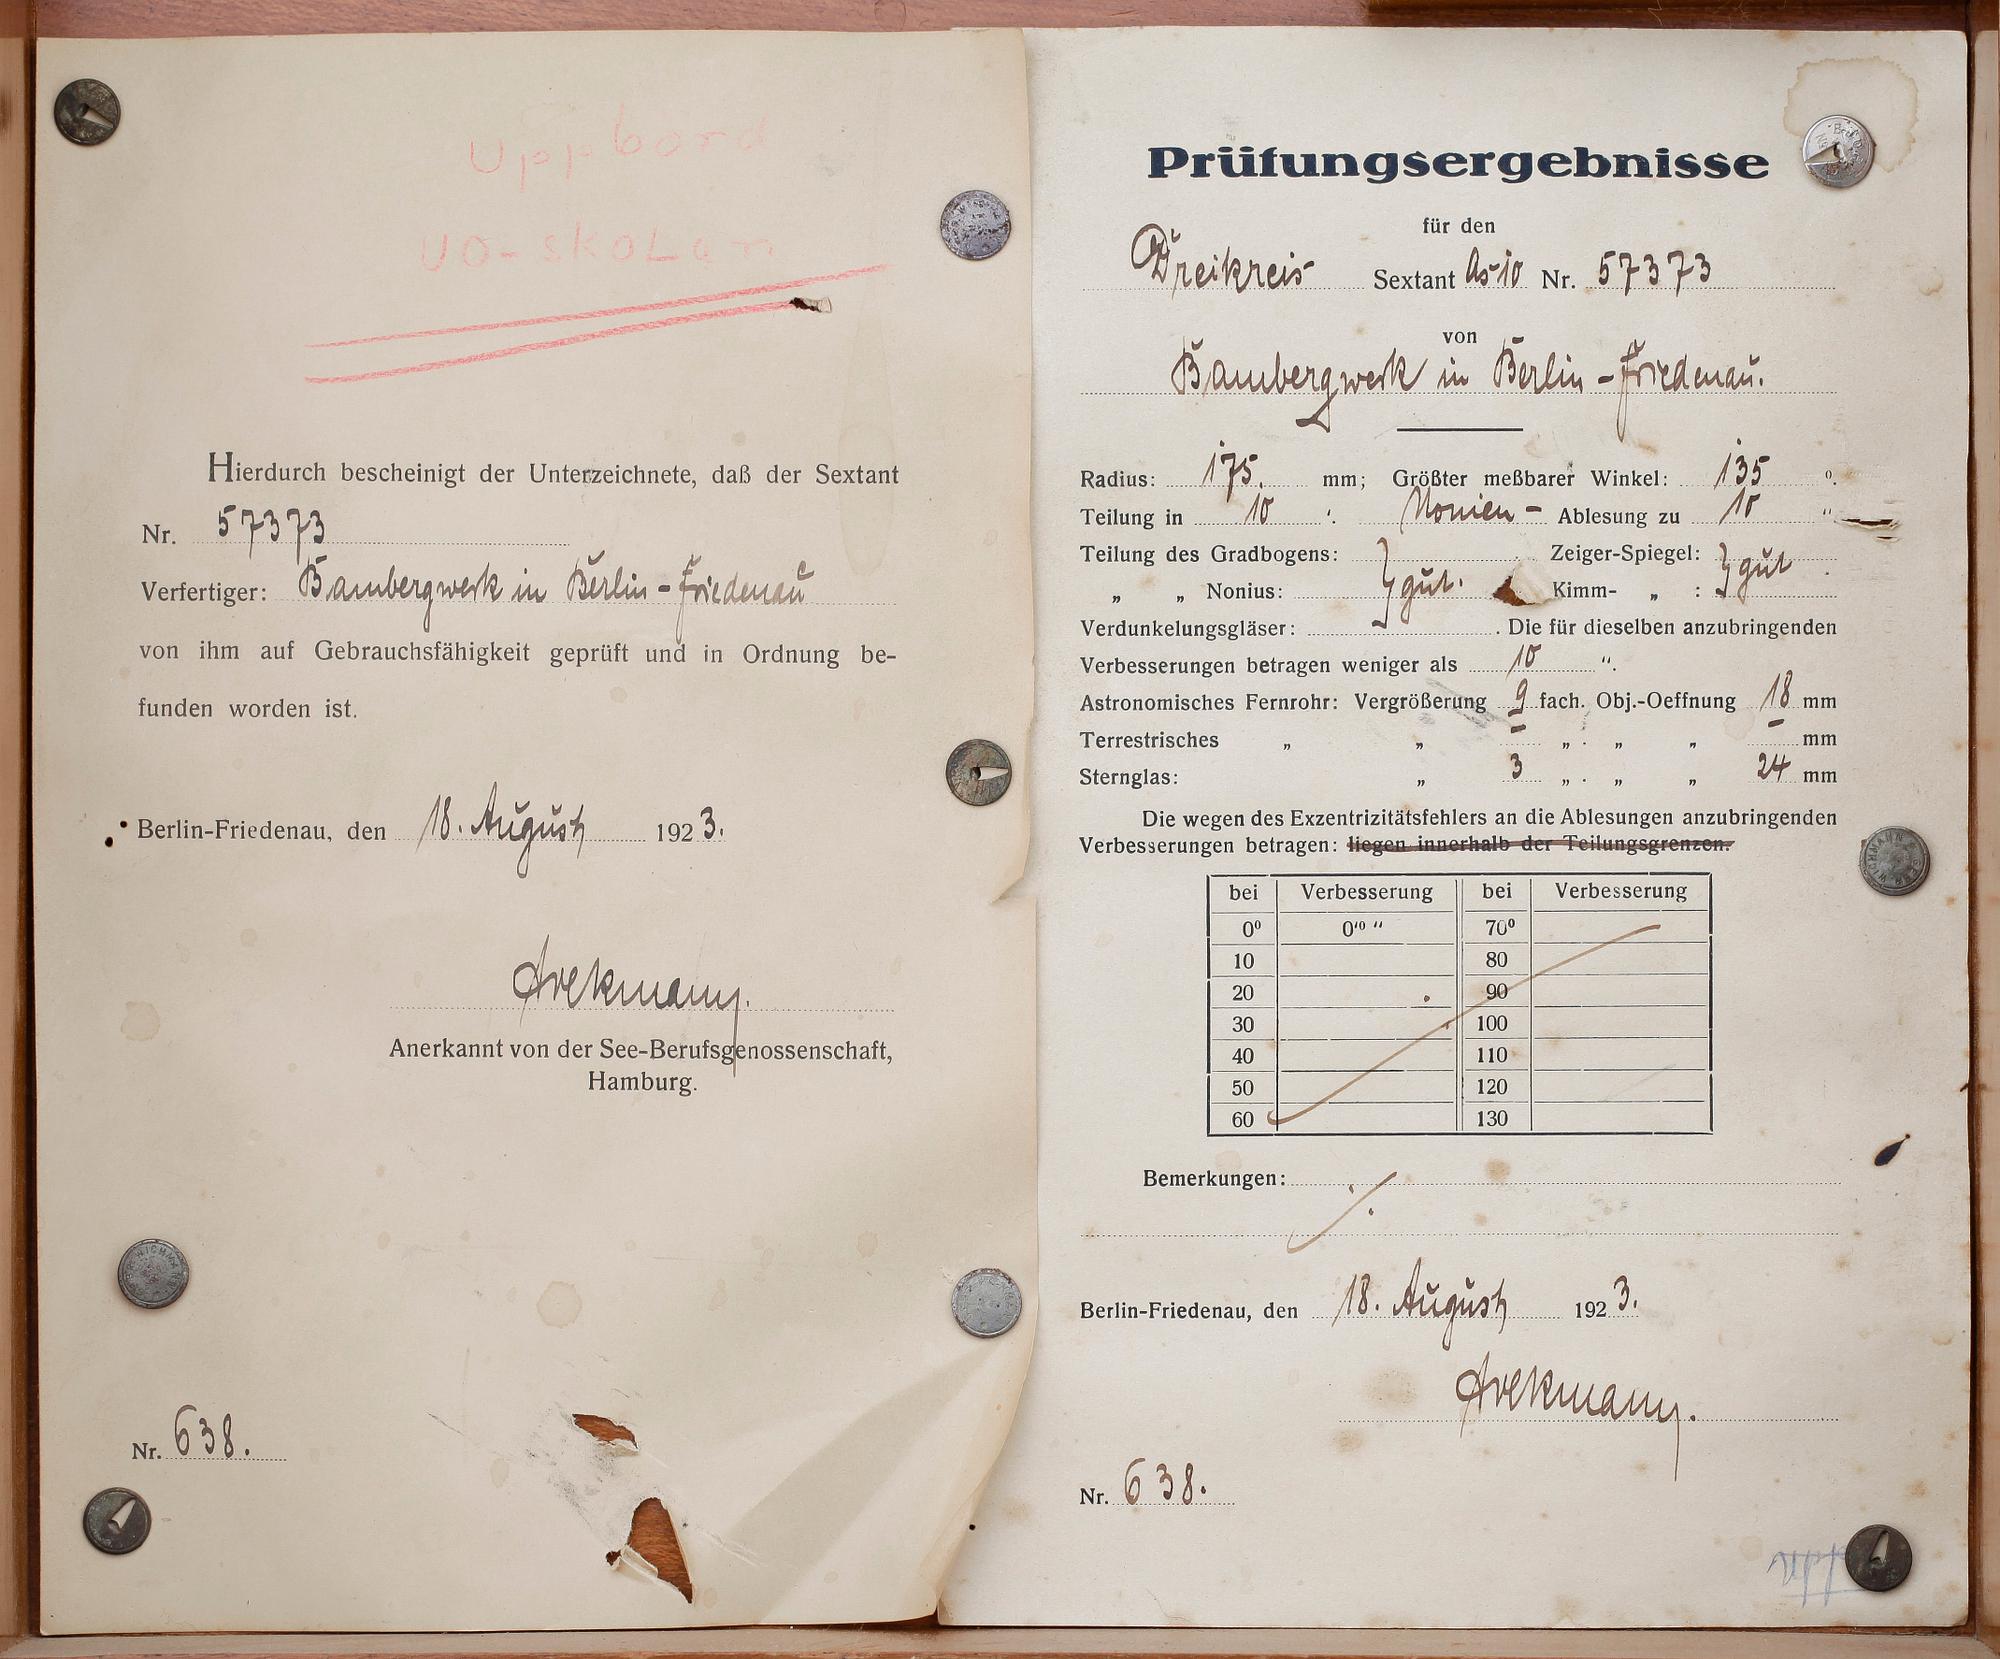 Uppbörd
UO-skolan
Hierdurch bescheinigt der Unterzeichnete, daß der Sextant
Nr. 57373
Verfertiger: Bambergwerk in Berlin-Friedenau
von ihm auf Gebrauchsfähigkeit geprüft und in Ordnung be-
funden worden ist.
Berlin-Friedenau, den 18. August 1923.
Anerkannt von der See-Berufsgenossenschaft,
Hamburg.
Nr. 638.
Prüfungsergebnisse
für den
Dreikreis Sextant Nr. 57373
von
Bambergwerk in Berlin-Friedenau.
Radius: 175. mm; Größter meßbarer Winkel: 135 °.
Teilung in 10 '. Nonien- Ablesung zu 10 "
Teilung des Gradbogens: } gut. Zeiger-Spiegel: } gut.
„ „ Nonius: Kimm- „ :
Verdunkelungsgläser: . Die für dieselben anzubringenden
Verbesserungen betragen weniger als 10 ".
Astronomisches Fernrohr: Vergrößerung 9 fach. Obj.-Oeffnung 18 mm
Terrestrisches „ „ – „ . „ „ – mm
Sternglas: „ 3 „ . „ „ 24 mm
Die wegen des Exzentrizitätsfehlers an die Ablesungen anzubringenden
Verbesserungen betragen: liegen innerhalb der Teilungsgrenzen.
bei Verbesserung bei Verbesserung
0° 0'0 " 70°
10 80
20 90
30 100
40 110
50 120
60 130
Bemerkungen:
Berlin-Friedenau, den 18. August 1923.
Nr. 638.